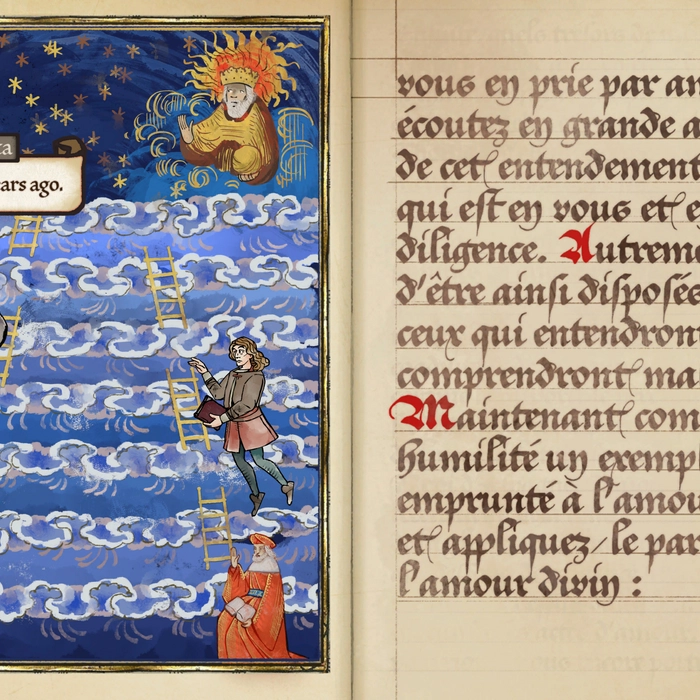 ta
ears ago.
vous en prie par am
écoutez en grande a
de cet entendement
qui est en vous et e
diligence. Autreme
d'être ainsi disposés
ceux qui entendront
comprendront ma
Maintenant com
humilité un exempl
emprunté à l'amou
et appliquez-le par
l'amour divin :